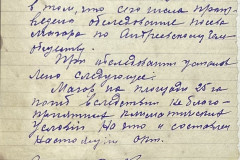 в том, что сего числа произ-
ведено обследование посева
Магара по Андреевскому сель
общству.
При обследовании установ
лено следующее:
Магар на площади 25 га
погиб вследствии не благо-
приятных климатических
условий на что и составлен
настоящий акт.